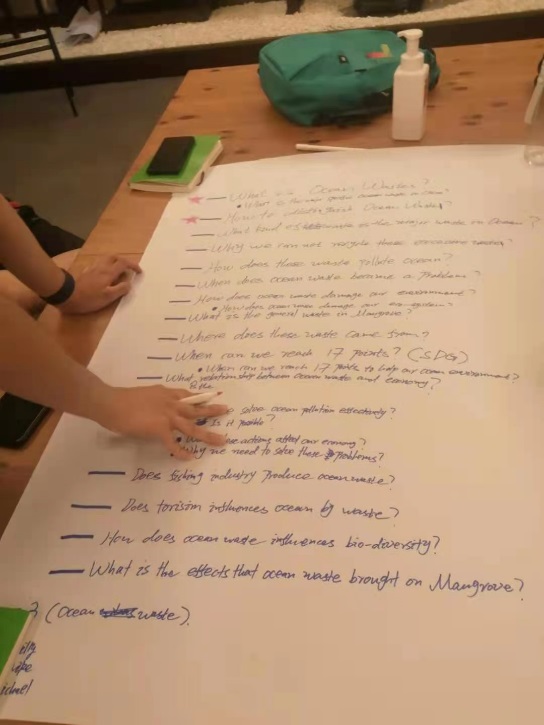 What is Ocean Waste?
How to distinguish Ocean Waste?
What kind of waste is the major waste in Ocean?
Why we can not recycle these
How does these waste pollute ocean?
When does ocean waste became a Problem?
How does ocean waste damage our environment?
• How does ocean waste damage our eco-system?
What is the general waste in Mangrove?
Where does these waste came from?
When can we reach 17 points? (SDG)
• When can we reach 17 points to help our ocean environment?
What relationship between ocean waste and economy?
solve ocean pollution effectively?
Is it possible?
these actions affect our economy?
Why we need to solve these problems?
Does fishing industry produce ocean waste?
Does torisim influences ocean by waste?
How does ocean waste influences bio-diversity?
What is the effects that ocean waste brought on Mangrove?
(Ocean waste).